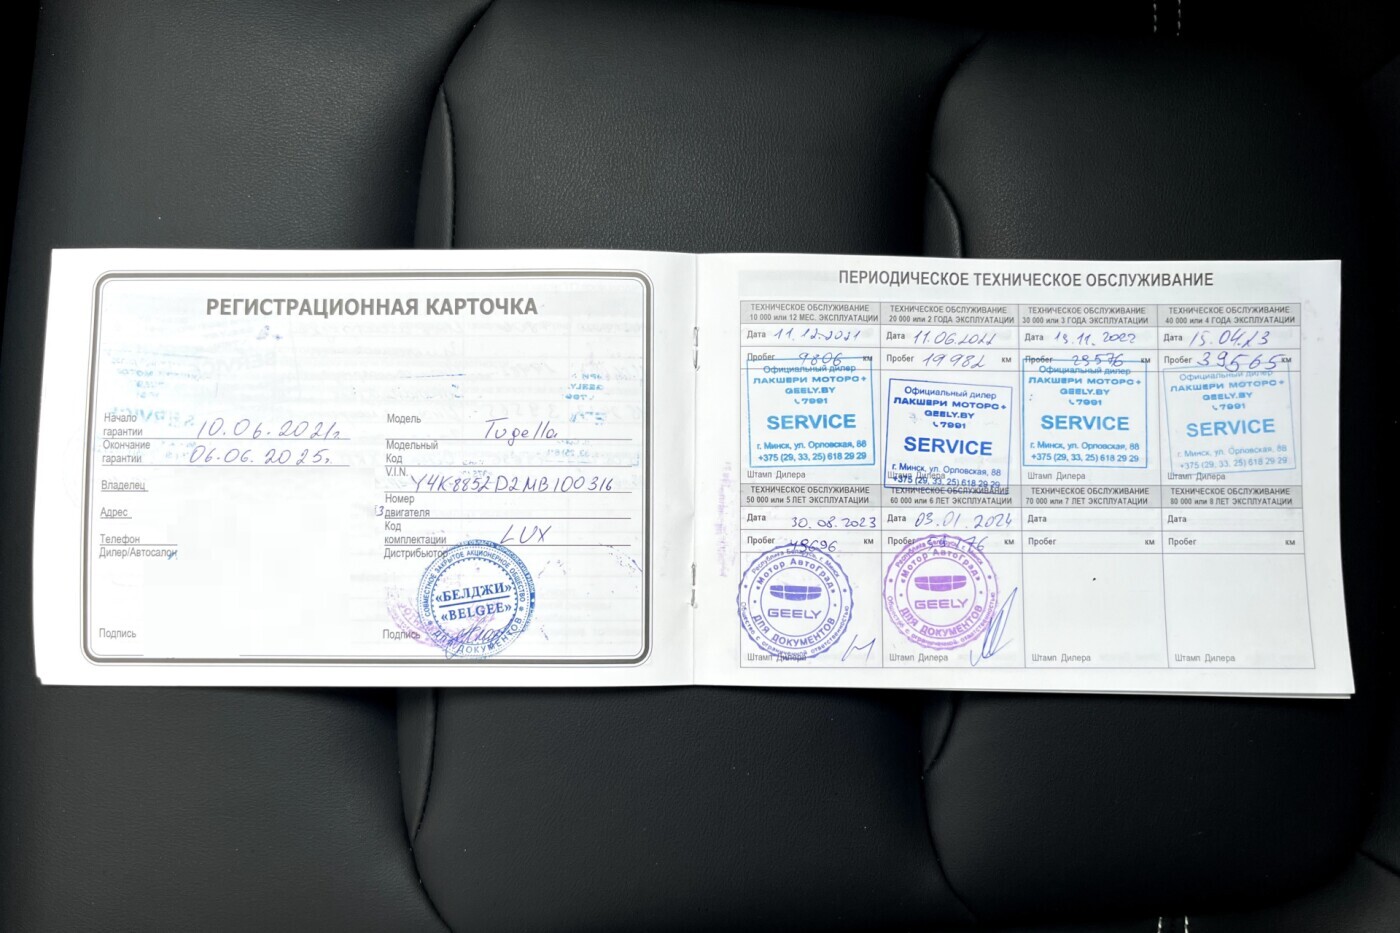 РЕГИСТРАЦИОННАЯ КАРТОЧКА
Начало
гарантии 10.06.2021г.
Окончание
гарантии 06.06.2025г.
Владелец
Адрес
Телефон
Дилер/Автосалон
Подпись
Модель Tugella
Модельный
Код
V.I.N. Y4K8852D2MB100316
Номер
двигателя
Код
комплектации LUX
Дистрибьютор
СОВМЕСТНОЕ ЗАКРЫТОЕ АКЦИОНЕРНОЕ ОБЩЕСТВО
«БЕЛДЖИ»
«BELGEE»
ДЛЯ ДОКУМЕНТОВ
Подпись
ПЕРИОДИЧЕСКОЕ ТЕХНИЧЕСКОЕ ОБСЛУЖИВАНИЕ
ТЕХНИЧЕСКОЕ ОБСЛУЖИВАНИЕ
10 000 или 12 МЕС. ЭКСПЛУАТАЦИИ
Дата 11.12.2021
Пробег 9806 км
Официальный дилер
ЛАКШЕРИ МОТОРС+
GEELY.BY
7991
SERVICE
г. Минск, ул. Орловская, 88
+375 (29, 33, 25) 618 29 29
Штамп Дилера
ТЕХНИЧЕСКОЕ ОБСЛУЖИВАНИЕ
20 000 или 2 ГОДА ЭКСПЛУАТАЦИИ
Дата 11.06.2022
Пробег 19982 км
Официальный дилер
ЛАКШЕРИ МОТОРС+
GEELY.BY
7991
SERVICE
г. Минск, ул. Орловская, 88
+375 (29, 33, 25) 618 29 29
ТЕХНИЧЕСКОЕ ОБСЛУЖИВАНИЕ
30 000 или 3 ГОДА ЭКСПЛУАТАЦИИ
Дата
Пробег 29576 км
Официальный дилер
ЛАКШЕРИ МОТОРС+
GEELY.BY
7991
SERVICE
г. Минск, ул. Орловская, 88
+375 (29, 33, 25) 618 29 29
Штамп Дилера
ТЕХНИЧЕСКОЕ ОБСЛУЖИВАНИЕ
40 000 или 4 ГОДА ЭКСПЛУАТАЦИИ
Дата 15.04.23
Пробег 39565 км
Официальный дилер
ЛАКШЕРИ МОТОРС+
GEELY.BY
7991
SERVICE
г. Минск, ул. Орловская, 88
+375 (29, 33, 25) 618 29 29
Штамп Дилера
ТЕХНИЧЕСКОЕ ОБСЛУЖИВАНИЕ
50 000 или 5 ЛЕТ ЭКСПЛУАТАЦИИ
Дата 30.08.2023
Пробег 48696 км
Республика Беларусь, г. Минск
«Мотор АвтоГрад»
GEELY
ДЛЯ ДОКУМЕНТОВ
Общество с ограниченной ответственностью
Штамп Дилера
ТЕХНИЧЕСКОЕ ОБСЛУЖИВАНИЕ
60 000 или 6 ЛЕТ ЭКСПЛУАТАЦИИ
Дата 03.01.2024
Пробег км
Республика Беларусь, г. Минск
«Мотор АвтоГрад»
GEELY
ДЛЯ ДОКУМЕНТОВ
Общество с ограниченной ответственностью
Штамп Дилера
ТЕХНИЧЕСКОЕ ОБСЛУЖИВАНИЕ
70 000 или 7 ЛЕТ ЭКСПЛУАТАЦИИ
Дата
Пробег км
Штамп Дилера
ТЕХНИЧЕСКОЕ ОБСЛУЖИВАНИЕ
80 000 или 8 ЛЕТ ЭКСПЛУАТАЦИИ
Дата
Пробег км
Штамп Дилера